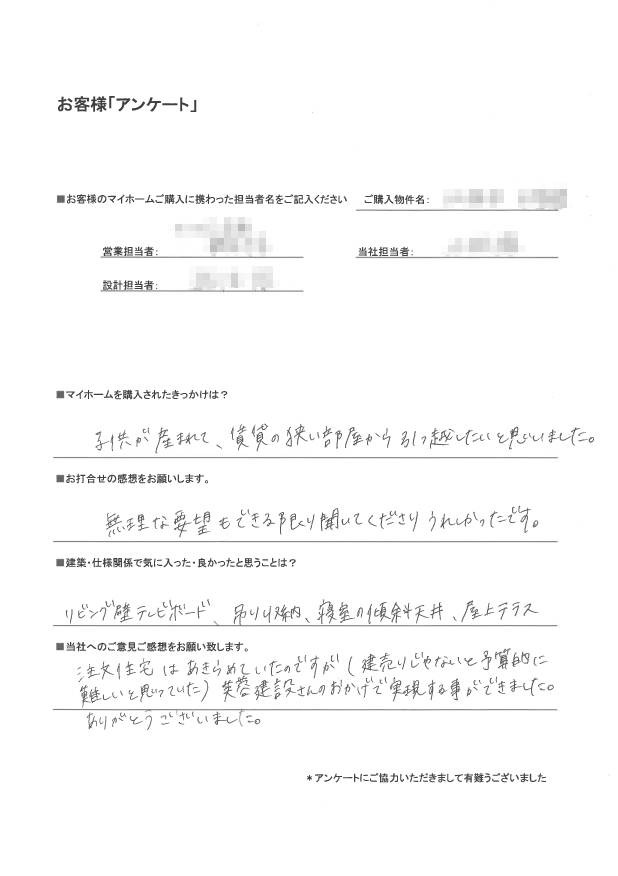 お客様「アンケート」
■お客様のマイホームご購入に携わった担当者名をご記入ください　ご購入物件名：
営業担当者：　当社担当者：
設計担当者：
■マイホームを購入されたきっかけは？
子供が産まれて、賃貸の狭い部屋から引っ越したいと思いました。
■お打合せの感想をお願いします。
無理な要望もできる限り聞いてくださりうれしかったです。
■建築・仕様関係で気に入った・良かったと思うことは？
リビング壁テレビボード、吊り収納、寝室の傾斜天井、屋上テラス
■当社へのご意見ご感想をお願い致します。
注文住宅はあきらめていたのですが（建売りじゃないと予算的に
難しいと思っていた）芙蓉建設さんのおかげで実現する事ができました。
ありがとうございました。
＊アンケートにご協力いただきまして有難うございました